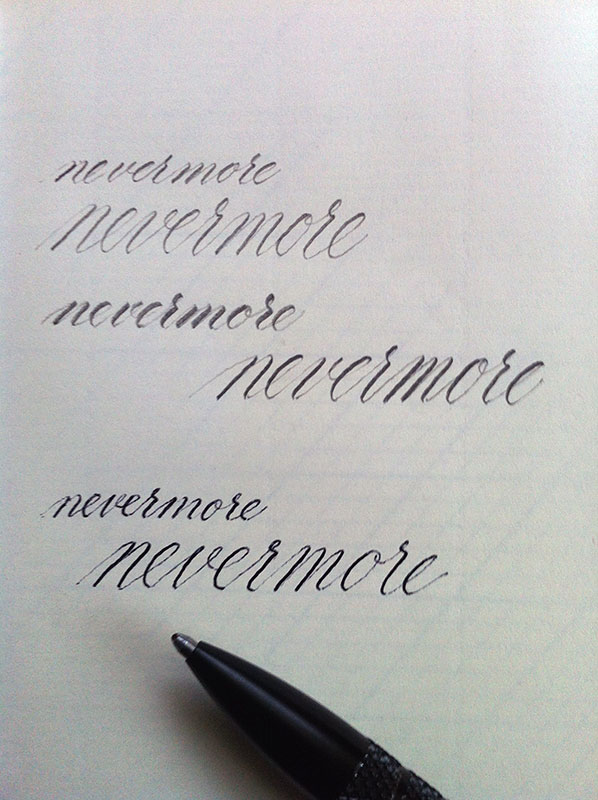 nevermore
nevermore
nevermore
nevermore
nevermore
nevermore